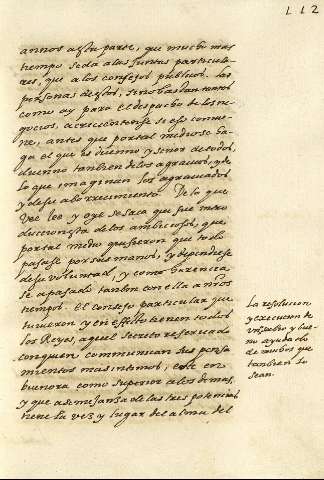 112
annos a esta parte, que mucho mas
tiempo se da a las Juntas particula-
res, que a los consejos publicos. las
personas destos, si no bastan tantos
como ay para el despacho de los ne-
gocios, acrecientense si esso convie-
ne, antes que por tal medio se ha-
ga el que es dueño y señor de todos,
dueño tanbien de los agravios, y de
lo que imaginan los agraviados
y desse aborrecimiento. De lo que
vee lee y oye se saca que fue intro
duccion esta de los ambiciosos, que
por tal medio quisieron que todo
pasase por sus manos, y dependiese
de su voluntad, y como herencia
se a pasado tanbien con ella a nros
tiempos. el consejo particular que
tuvieron y en effecto tienen todos
los Reyes, aquel secreto reservado
con quien communican sus pensa
mientos mas intimos, este en
buenora como superior a los demas,
y que a semejança de las tres potencias
tiene la vez y lugar del alma del
la resolucion
y execucion de
uno solo y bue-
no ayudado
de muchos que
tanbien lo
sean.